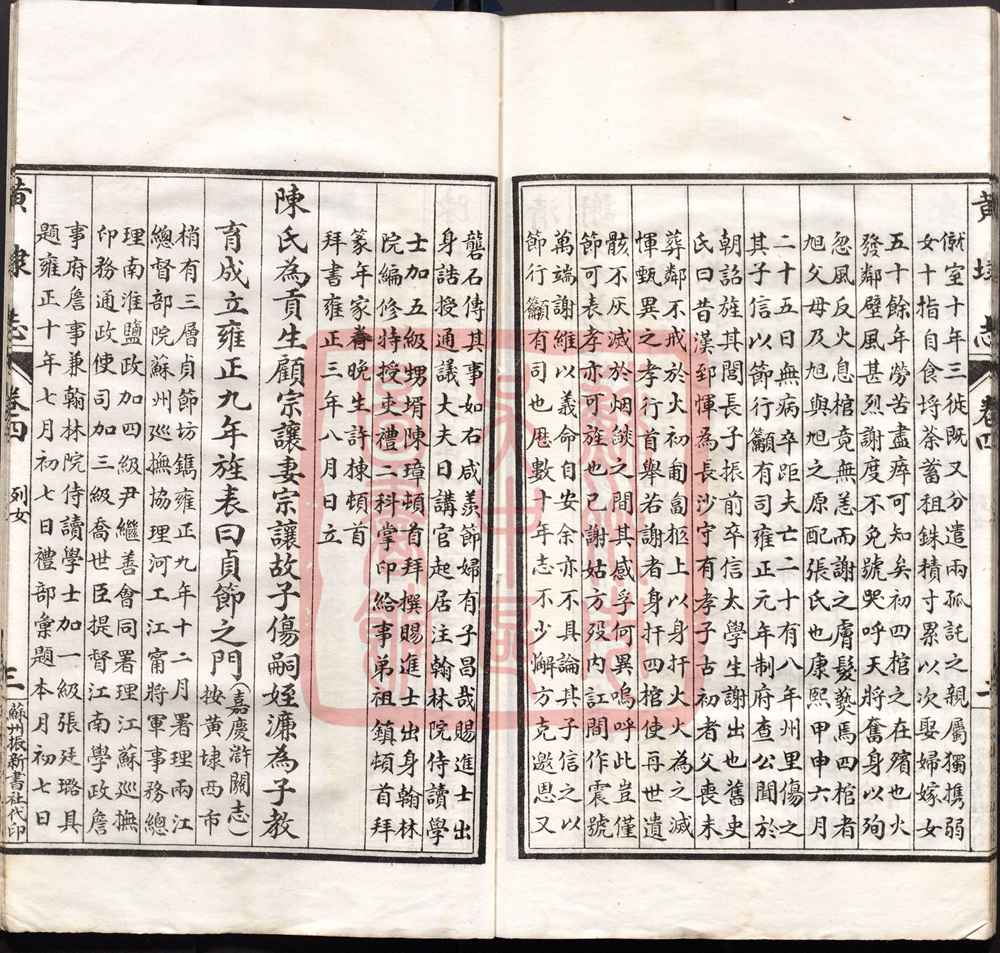 黄埭志 卷四 二
僦室十年三徙既又分遣兩孤託之親屬獨携弱
女十指自食埓荼蓄租銖積寸累以次娶婦嫁女
五十餘年勞苦盡瘁可知矣初四棺之在殯也火
發鄰壁風甚烈謝度不免號哭呼天將奮身以殉
忽風反火息棺竟無恙而謝之膚髮爇焉四棺者
旭父母及旭與旭之原配張氏也康熙甲申六月
二十五日無病卒距夫亡二十有八年州里傷之
其子信以節行籲有司雍正元年制府查公聞於
朝詔旌其閭長子振前卒信太學生謝出也舊史
氏曰昔漢郅惲為長沙守有孝子古初者父喪未
葬鄰不戒於火初匍匐柩上以身扞火火為之滅
惲甄異之孝行首舉若謝者身扞四棺使再世遺
骸不灰滅於烟燄之間其感孚何異嗚呼此豈僅
節可表孝亦可旌也已謝姑方歿内訌間作震號
萬端謝維以義命自安余亦不具論其子信之以
節行籲有司也厯數十年志不少懈方克邀恩又
礱石傳其事如右咸羨節婦有子昌哉賜進士出
身誥授通議大夫日講官起居注翰林院侍讀學
士加五級甥壻陳璋頓首拜撰賜進士出身翰林
院編修特授吏禮二科掌印給事弟祖鎮頓首拜
篆年家眷晚生許棟頓首
拜書雍正三年八月日立
陳氏為貢生顧宗讓妻宗讓故子傷嗣姪濂為子教
育成立雍正九年旌表曰貞節之門(嘉慶滸關志)
按黄埭西市
梢有三層貞節坊鐫雍正九年十二月署理兩江
總督部院蘇州巡撫協理河工江甯將軍事務總
理南淮鹽政加四級尹繼善會同署理江蘇巡撫
印務通政使司加三級喬世臣提督江南學政詹
事府詹事兼翰林院侍讀學士加一級張廷璐具
題雍正十年七月初七日禮部彙題本月初七日
黄埭志 卷四 列女 三 蘇州振新書社代印